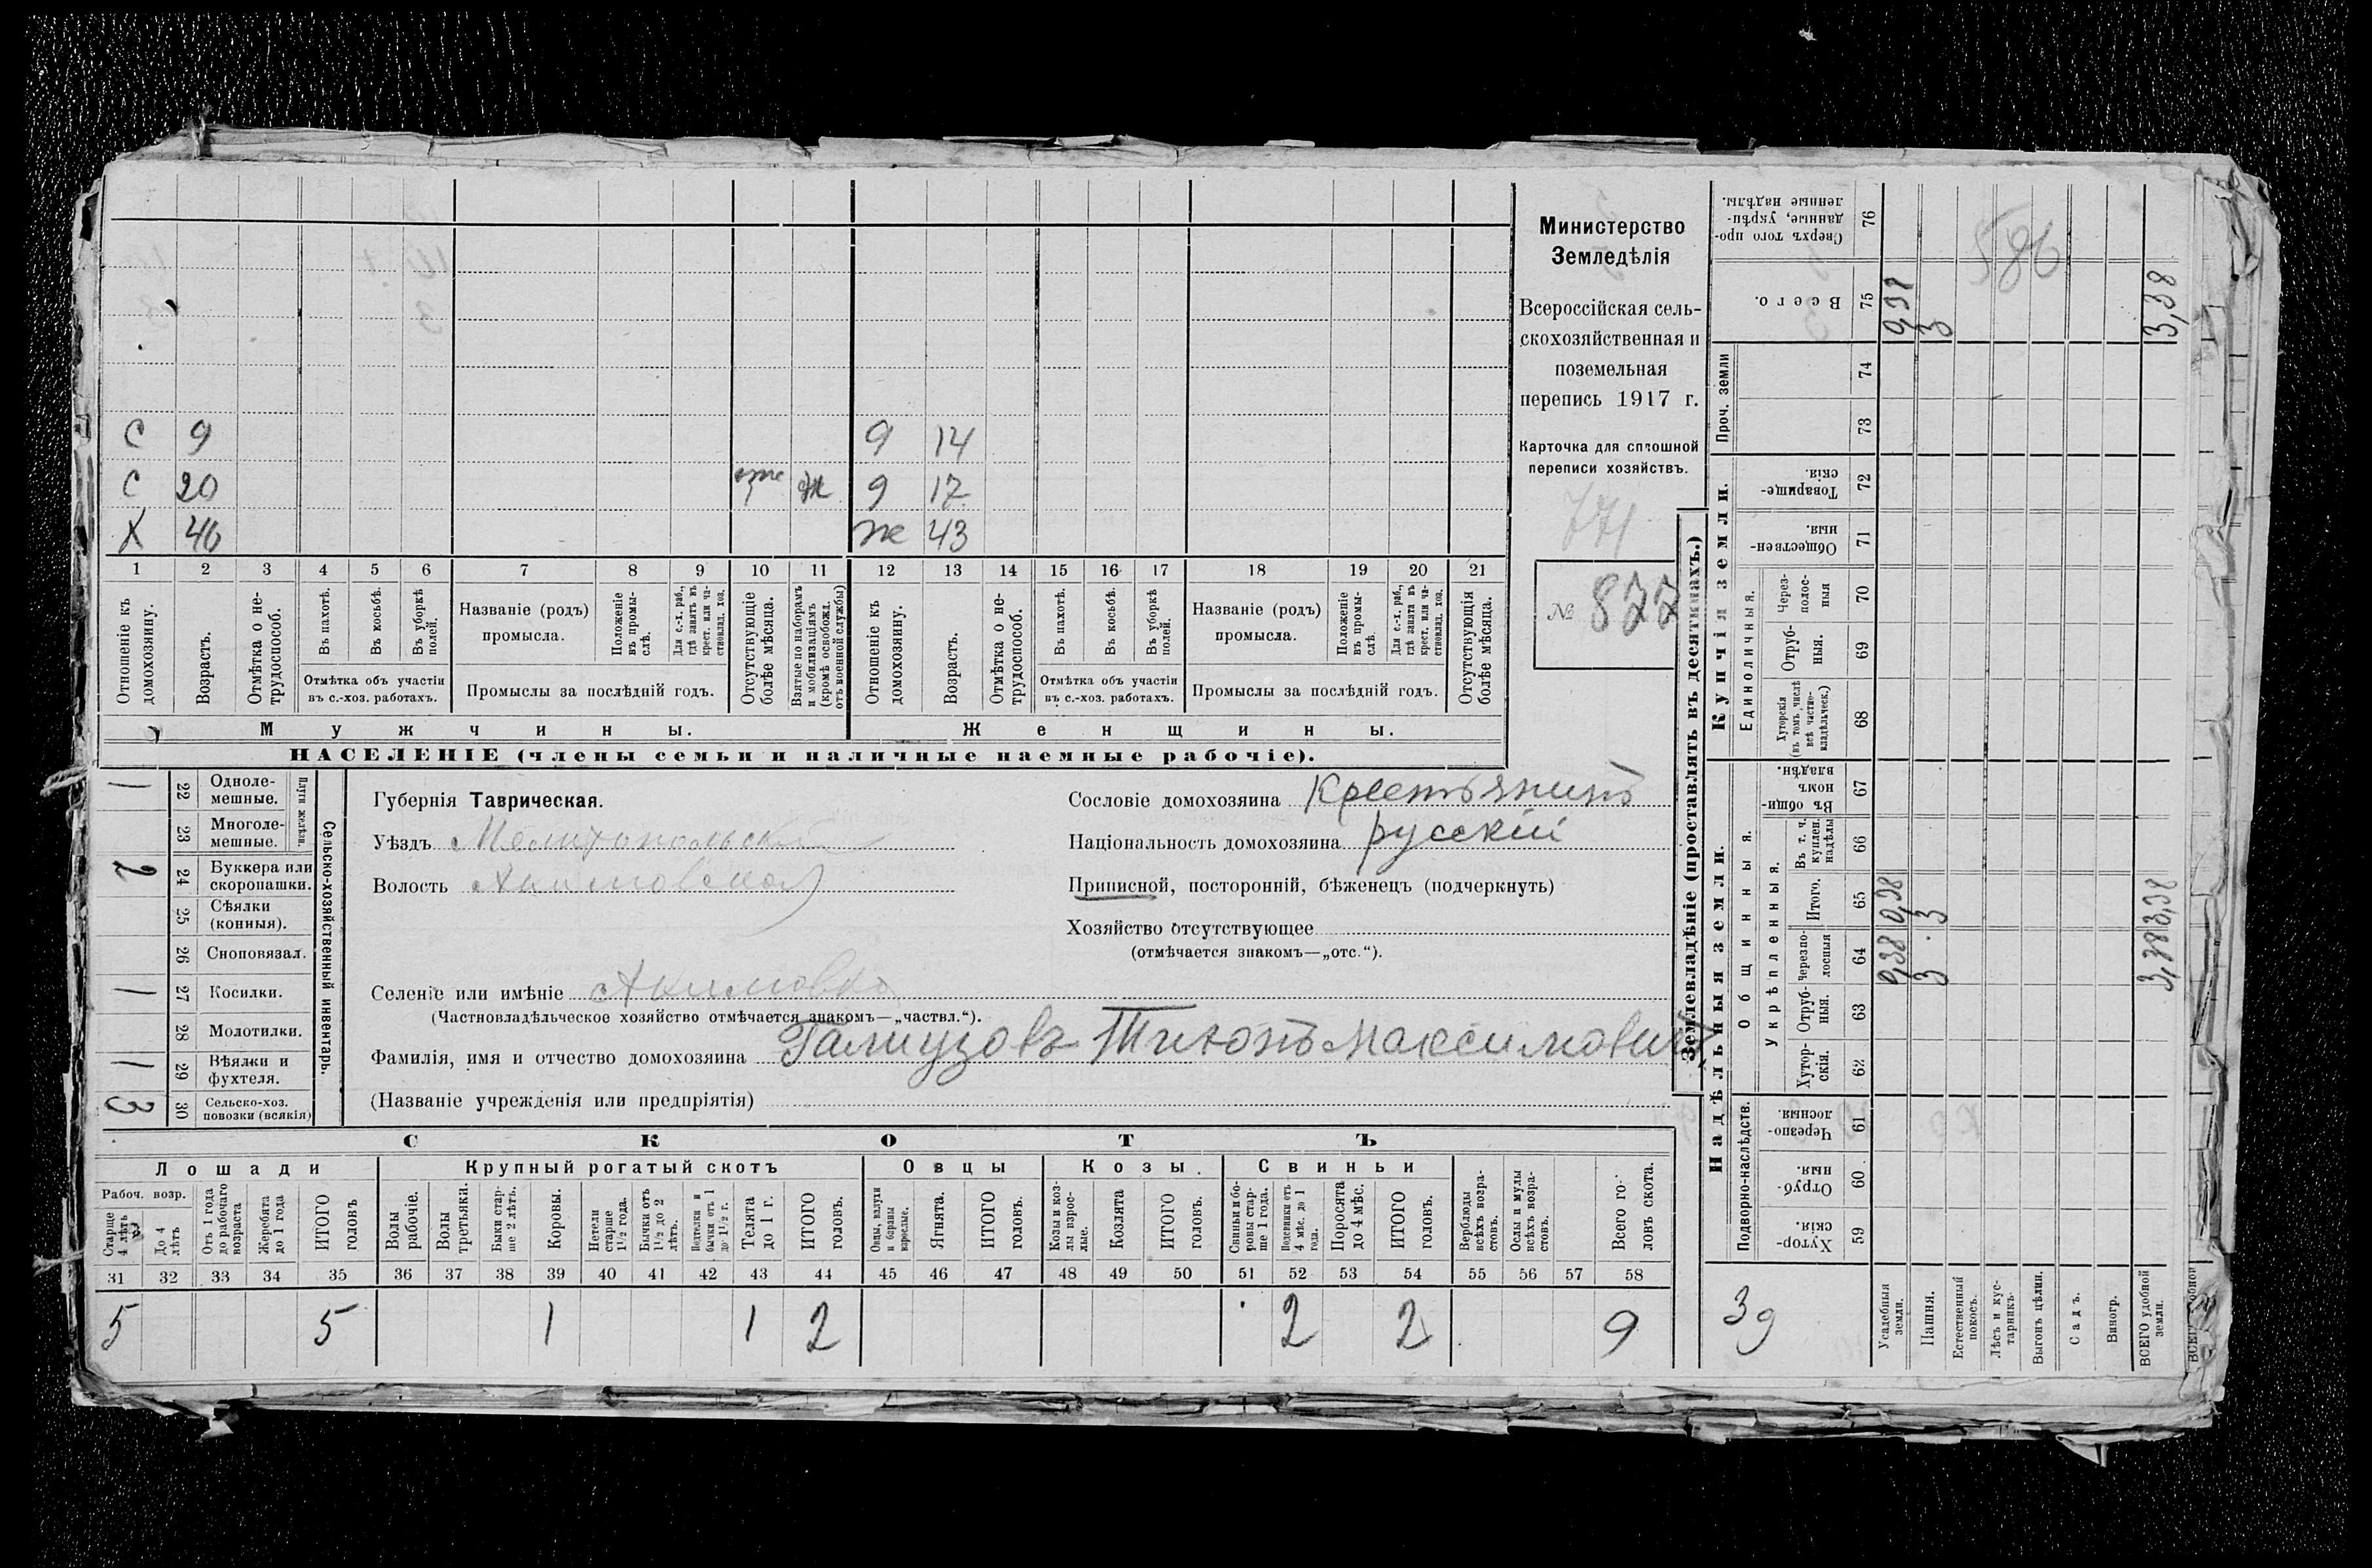 С 9 9 14
С 20 9 17
Х 46 ж 43
1 2 3 4 5 6 7 8 9 10 11 12 13 14 15 16 17 18 19 20 21
Отношеніе къ домохозяину.
Возрастъ.
Отмѣтка о не-
трудоспособ.
Въ пахотѣ.
Въ косьбѣ.
Въ уборкѣ
полей.
Отмѣтка объ участіи
въ с.-хоз. работахъ.
Названіе (родъ)
промысла.
Положеніе
въ промы-
слѣ.
Для с.-х. раб.,
гдѣ занятъ въ
крест. или ча-
стновлад. хоз.
Промыслы за послѣдній годъ.
Отсутствующіе
болѣе мѣсяца.
Взятые по наборамъ
и мобилизаціямъ
(кромѣ освобожд.
отъ военной службы)
Отношеніе къ
домохозяину.
Возрастъ.
Отмѣтка о не-
трудоспособ.
Въ пахотѣ.
Въ косьбѣ.
Въ уборкѣ
полей.
Отмѣтка объ участіи
въ с.-хоз. работахъ.
Названіе (родъ)
промысла.
Положеніе
въ промы-
слѣ.
Для с.-х. раб.,
гдѣ занята въ
крест. или ча-
стновлад. хоз.
Промыслы за послѣдній годъ.
Отсутствующія
болѣе мѣсяца.
Мужчины.
Женщины.
НАСЕЛЕНІЕ (члены семьи и наличные наемные рабочіе).
Министерство
Земледѣлія
Всероссійская сель-
скохозяйственная и
поземельная
перепись 1917 г.
Карточка для сплошной
переписи хозяйствъ.
771
№ 877
Сельско-хозяйственный инвентарь.
Плуги желѣзн.
1 22 Одноле-
мешные.
23 Многоле-
мешные.
2 24 Буккера или
скоропашки.
25 Сѣялки
(конныя).
26 Сноповязал.
1 27 Косилки.
28 Молотилки.
1 29 Вѣялки и
фухтеля.
3 30 Сельско-хоз.
повозки (всякія)
Губернія Таврическая.
Уѣздъ Мелитопольскій
Волость Акимовская
Сословіе домохозяина Крестьянинъ
Національность домохозяина русскій
Приписной, посторонній, бѣженецъ (подчеркнуть)
Хозяйство отсутствующее
(отмѣчается знакомъ—„отс.“).
Селеніе или имѣніе Акимовка
(Частновладѣльческое хозяйство отмѣчается знакомъ—„частвл.“).
Фамилія, имя и отчество домохозяина Максимовичъ
(Названіе учрежденія или предпріятія)
СКОТЪ
Лошади
Крупный рогатый скотъ
Овцы
Козы.
Свиньи
Рабоч. возр.
Старше
4 лѣтъ
До 4
лѣтъ
Отъ 1 года
до рабочаго
возраста
Жеребята
до 1 года
ИТОГО
головъ
Волы
рабочіе.
Волы
третьяки.
Быки стар-
ше 2 лѣтъ.
Коровы.
Нетели
старше
1½ года.
Бычки отъ
1½ до 2
лѣтъ.
Подтелки и
бычки отъ 1
до 1½ г.
Телята
до 1 г.
ИТОГО
головъ.
Овцы, валухи
и бараны
взрослые.
Ягнята.
ИТОГО
головъ.
Козы и коз-
лы взрос-
лые.
Козлята
ИТОГО
головъ.
Свиньи и бо-
ровы стар-
ше 1 года.
Подсвинки отъ
4 мѣс. до 1
года.
Поросята
до 4 мѣс.
ИТОГО
головъ.
Верблюды
всѣхъ возра-
стовъ.
Ослы и мулы
всѣхъ возра-
стовъ.
Всего го-
ловъ скота.
31 32 33 34 35 36 37 38 39 40 41 42 43 44 45 46 47 48 49 50 51 52 53 54 55 56 57 58
5 5 1 1 2 2 2 9
Землевладѣніе (проставлять въ десятинахъ.)
Надѣльныя земли.
Купчія земли.
Проч. земли
Подворно-наслѣдств.
Общинныя.
Укрѣпленныя.
Единоличныя.
Сверхъ того про-
данные, укрѣп-
ленные надѣлы.
76
586
Всего.
75
0,38
3
3,38
74
73
Товарище-
скія.
72
Обществен-
ныя.
71
Через-
полос-
ныя
70
Отруб-
ныя.
69
Хуторскія
(въ томъ числѣ
всѣ частно-
владѣльческ.)
68
Въ общин-
номъ
владѣн.
67
Въ т. ч.
куплен.
надѣлы
66
Итого.
65
0,38
3
3,38
Черезпо-
лосныя
64
0,38
3
3,38
Отруб-
ныя.
63
Хутор-
скія.
62
Черезпо-
лосныя.
61
Отруб-
ныя.
60
Хутор-
скія.
59
39
Усадебныя
земли.
Пашня.
Естественный
покосъ.
Лѣсъ и кус-
тарникъ.
Выгонъ цѣлин.
Садъ.
Виногр.
ВСЕГО удобной
земли.